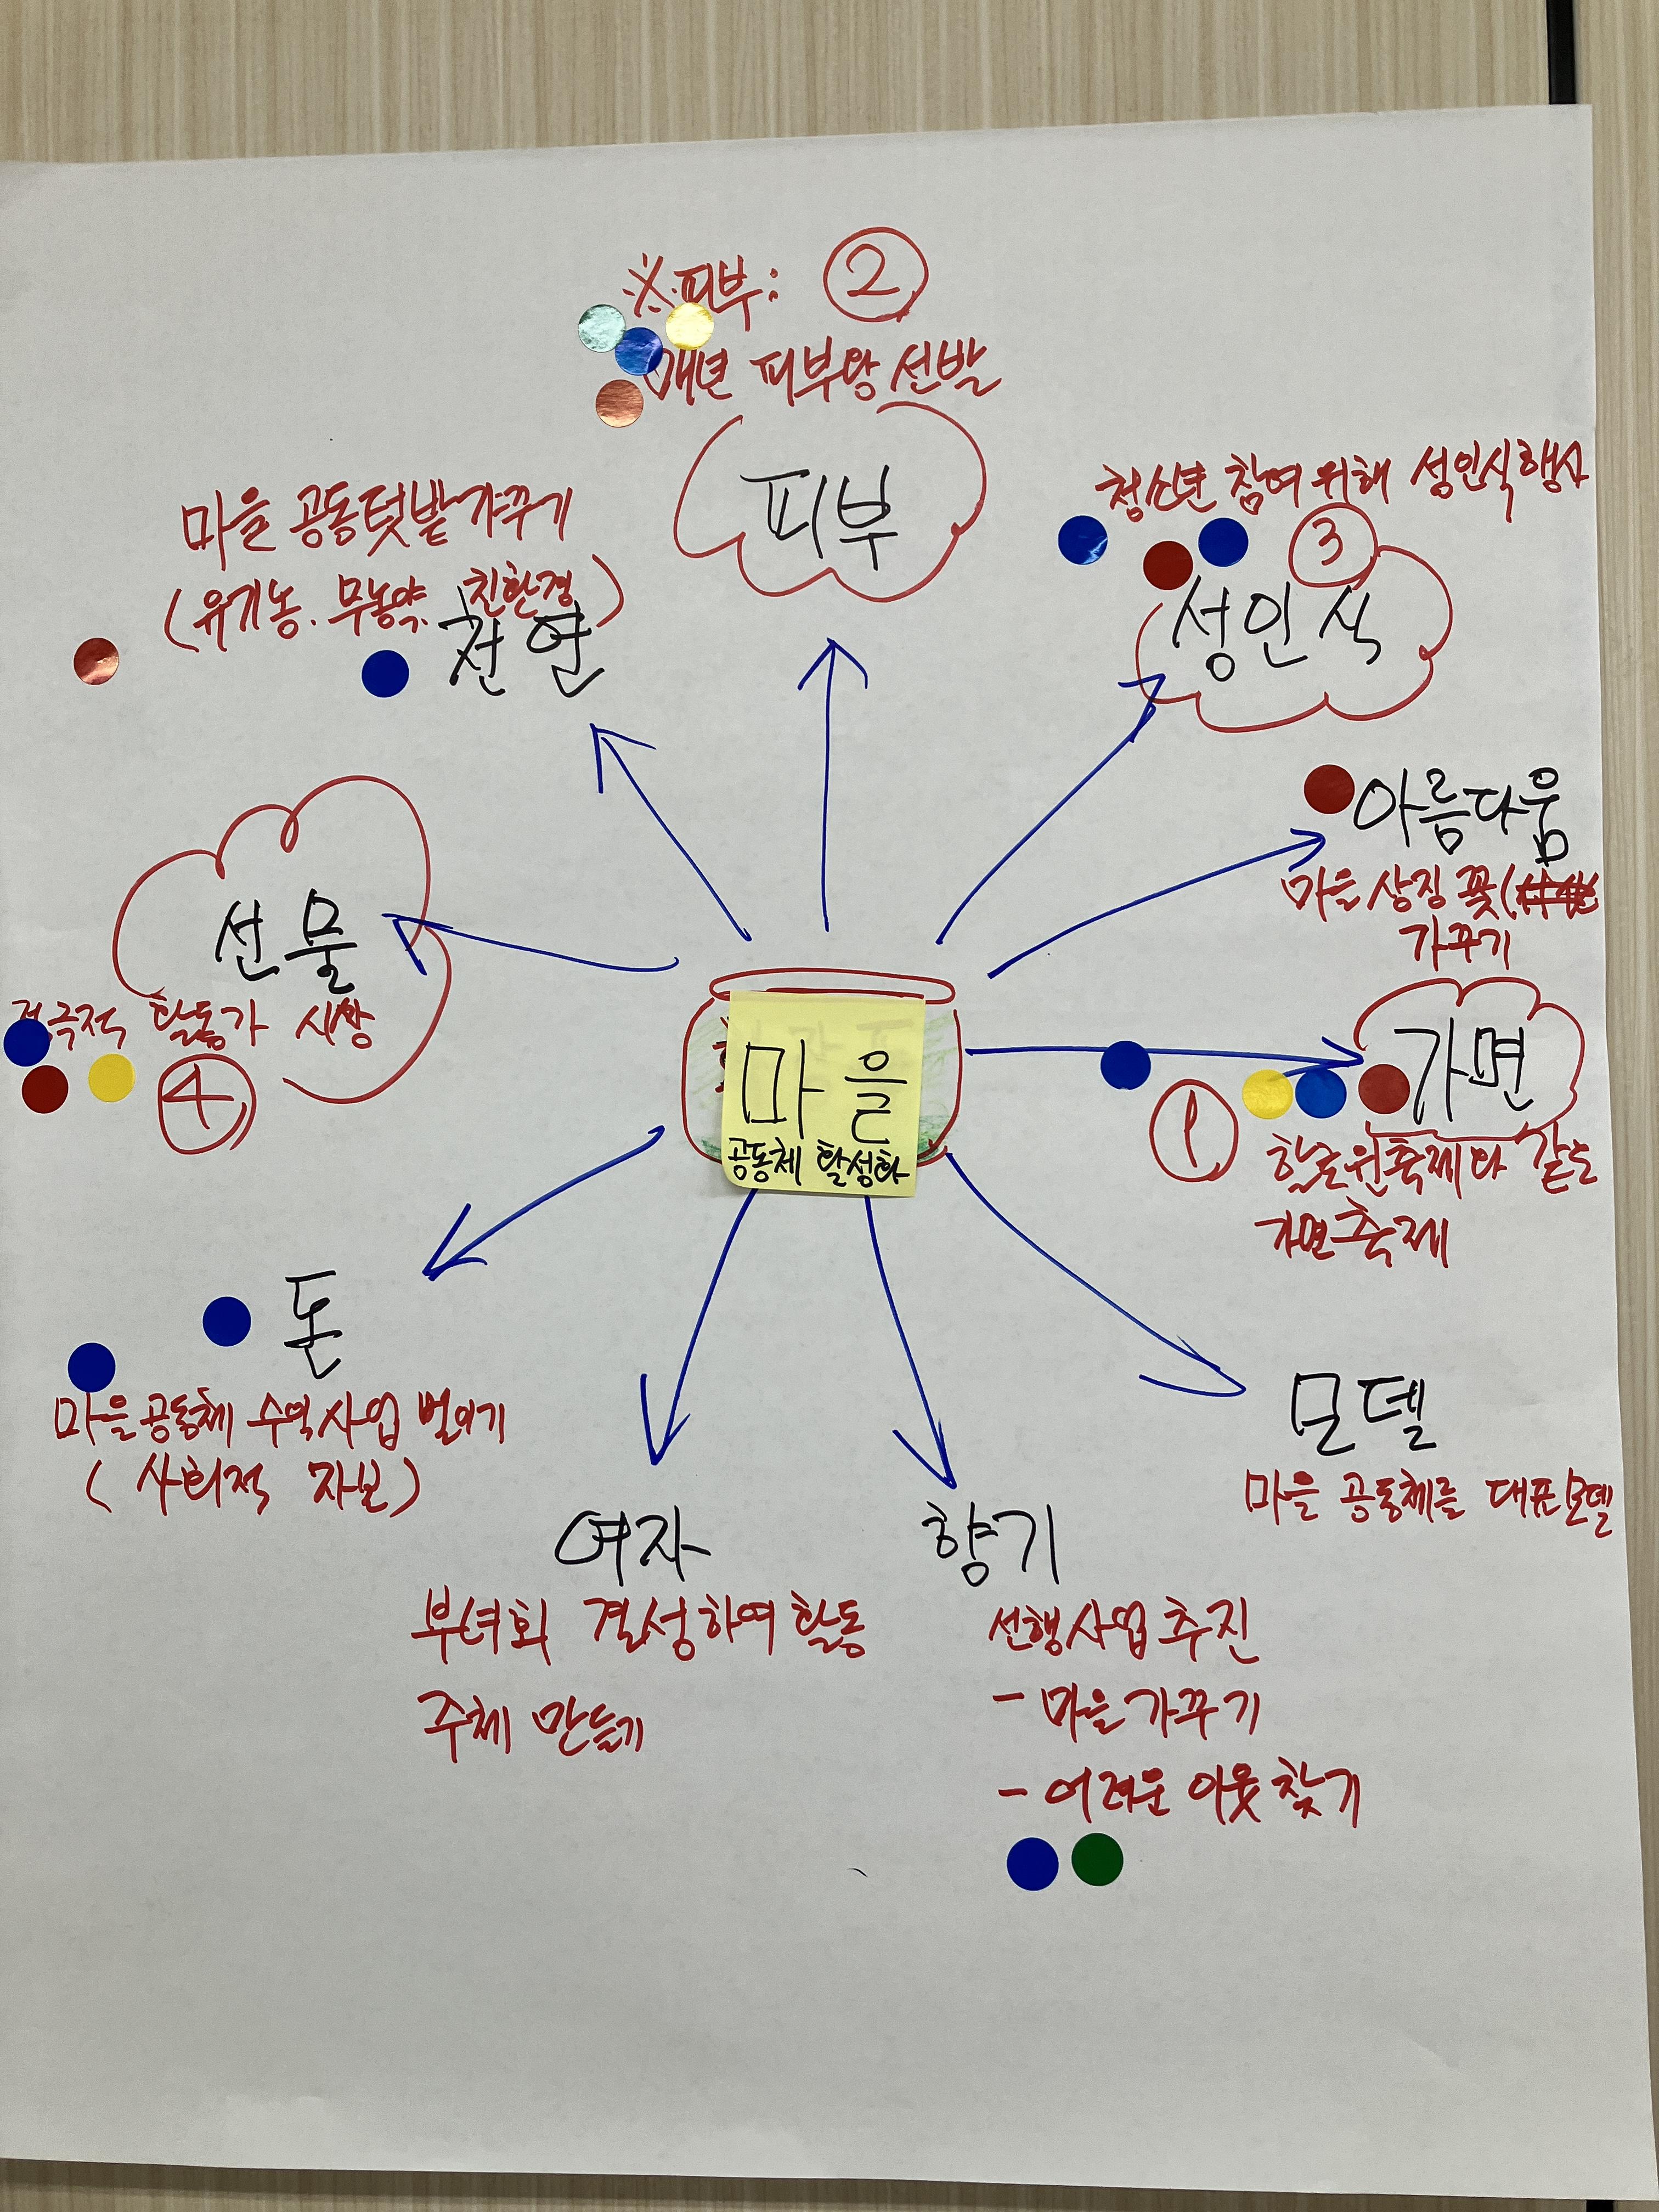 ※피부: ②
매년 피부왕 선발
피부
청소년 참여 위해 성인식행사
③
성인식
마을 공동텃밭가꾸기
(유기농. 무농약. 친환경)
천연
아름다움
마을 상징 꽃(
가꾸기
선물
적극적 활동가 시상
④
마을
공동체 활성화
가면
①
할로윈축제와 같은
가면축제
돈
마을공동체 수익사업 벌이기
(사회적 자본)
모델
마을 공동체를 대표모델
여자
부녀회 결성하여 활동
주체 만들기
향기
선행사업 추진
- 마을 가꾸기
- 어려운 이웃 찾기